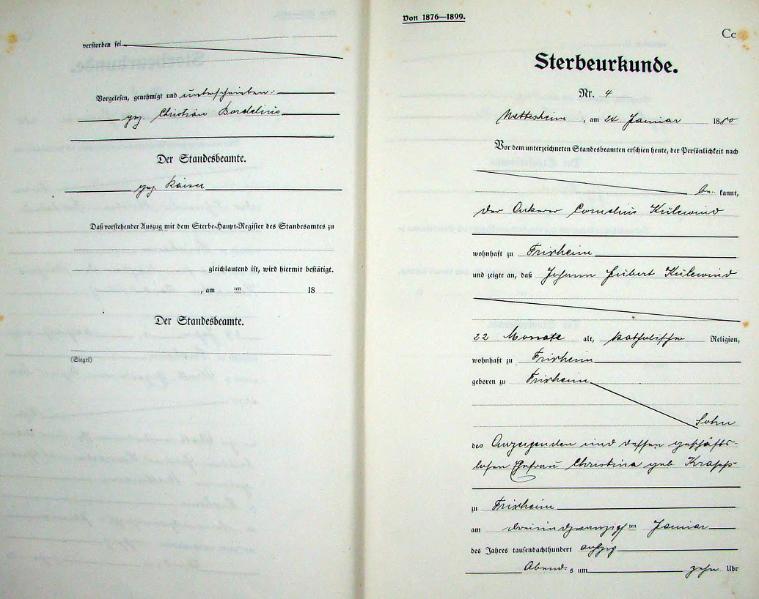 verstorben sei
Vorgelesen, genehmigt und unterschrieben.
gez. Christian Bardelius
Der Standesbeamte.
gez. Kaiser
Daß vorstehender Auszug mit dem Sterbe-Haupt-Register des Standesamtes zu
gleichlautend ist, wird hiermit bestätigt.
, am ten 18
Der Standesbeamte.
(Siegel)
Von 1876—1899.
Cc
Sterbeurkunde.
Nr. 4
Nettesheim, am 24. Januar 1880
Vor dem unterzeichneten Standesbeamten erschien heute, der Persönlichkeit nach
be kannt,
der Ackerer Cornelius Külwind
wohnhaft zu Frixheim
und zeigte an, daß Johann Hubert Külwind
22 Monate alt, katholische Religion,
wohnhaft zu Frixheim
geboren zu Frixheim
Sohn
des Anzeigenden und dessen geschäfts-
losen Ehefrau Christina geb
zu Frixheim
am ten Januar
des Jahres tausendachthundert achtzig
Abends um zehn Uhr